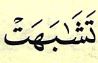 تَشَٰبَهَتۡ